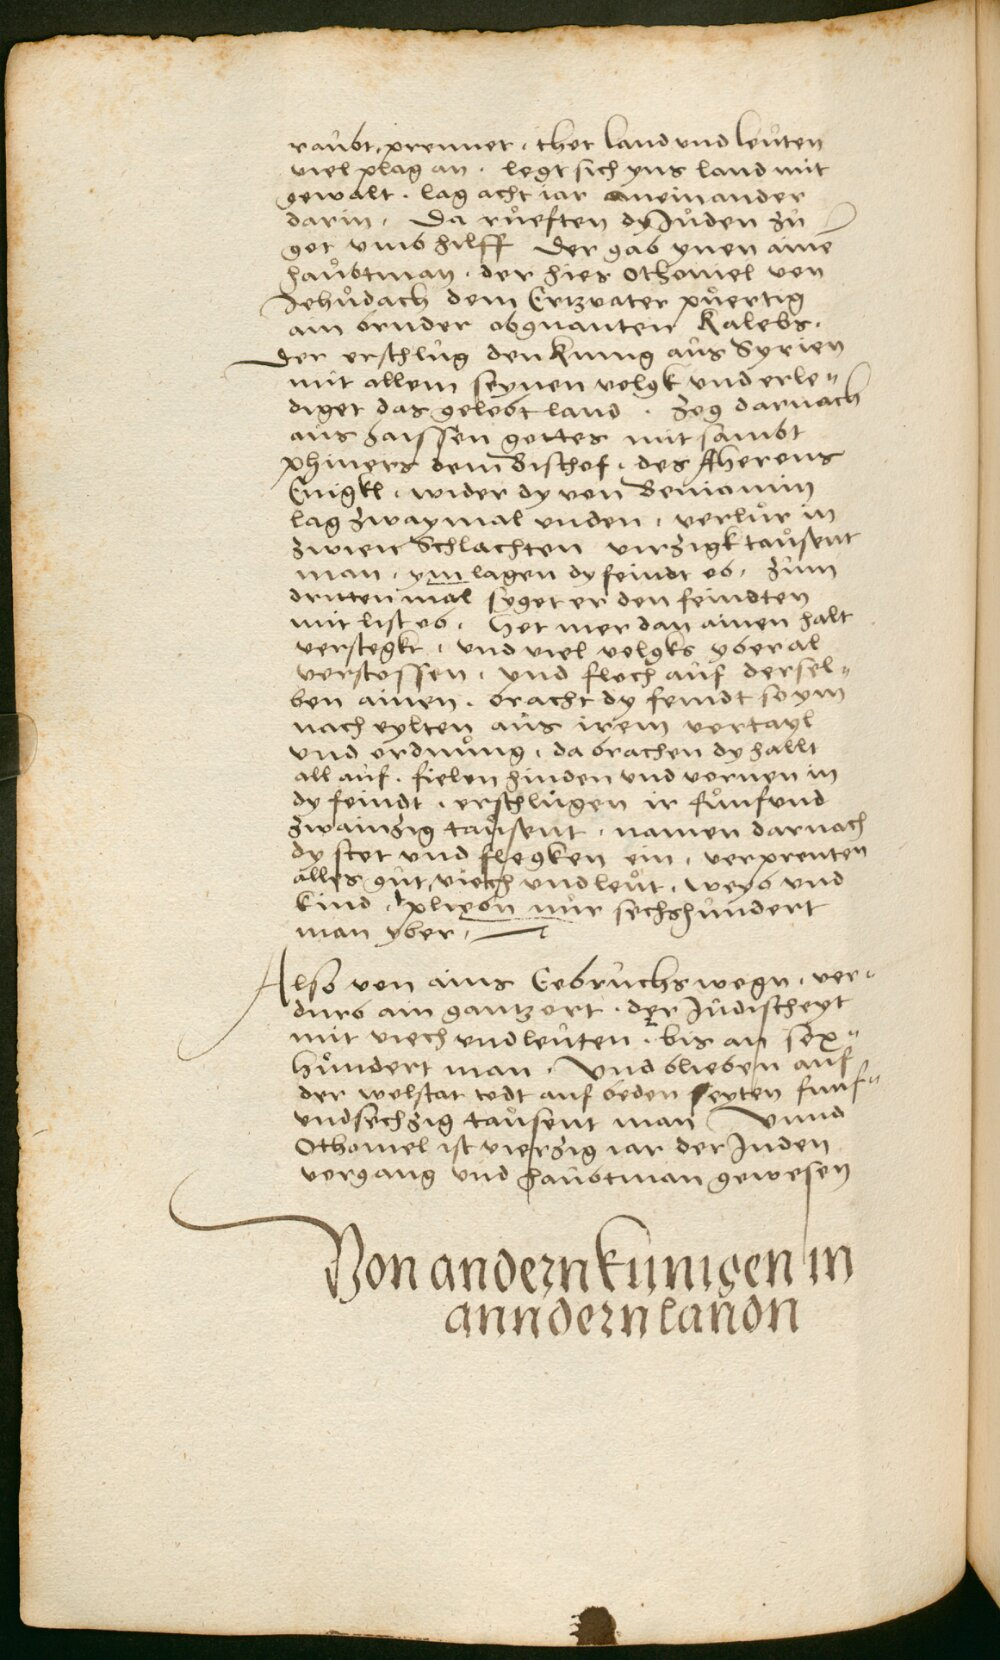 raubt, prennet . thet land und leůten
viel plag an . legt sich yns land mit
gewalt . lag acht iar aneinander
darin . Da růeften dy Jůden zů
got umb hilff Der gab ynen aine
haůbtman . der hies Othoniel von
Jehůdach dem Ertzvater půertig
ain bruder obgnanten Kalebs .
Der erschlůg den Kunig aůs Syrien
mit allem seynen volgk und erle„
diget das gelobt land . zog darnach
aůs haissen gottes mit sambt
phinees dem Bischof . des Aherons
Enigkl . wider dy von Beniamin
lag zwaymal unden . verlůr in
zwien Schlachten virzigk taůsent
man . ym lagen dy feindt ob . zům
dritten mal syget er den feindten
mit list ob . Het mer dan ainen halt
verstegkt . und viel volgks yberal
verstossen . und floch auf dersel„
ben ainen . bracht dy feindt so ym
nach eylten aůs irem vortayl
und ordnůng . da brachen dy hallt
all aůf . fielen hinden und vornen in
dy feindt . erschlůgen ir fůnfund
zwainzig taůsent . namen darnach
dy stet und flegken ein . verprenten
alles gůt, viech und leůt . weyb und
kind . plibn nůr sechshůndert
man yber .
Also von ains Eebrůchs wegn . ver„
durb ain gantz ort . der Jůdischeyt
mit viech und leůten . bis an sex„
hůndert man . Und blieben auf
der walstat todt auf beden seyten funf„
undsechzig taůsent man Unnd
Othoniel ist vierzig iar der Juden
vorgang und haůbtman gewesen
Von andern kunigen in
anndern landn